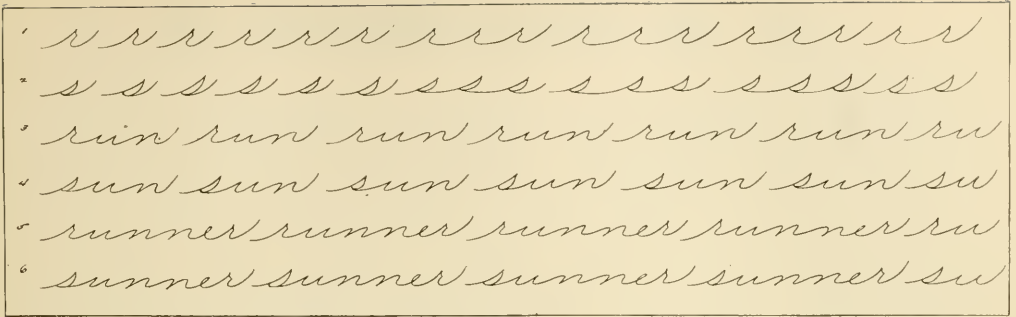 1 r r r r r r rrr rrr rrr rr
2 s s s s s s sss sss sss ss
3 run run run run run run ru
4 sun sun sun sun sun sun su
5 runner runner runner runner ru
6 sunner sunner sunner sunner su